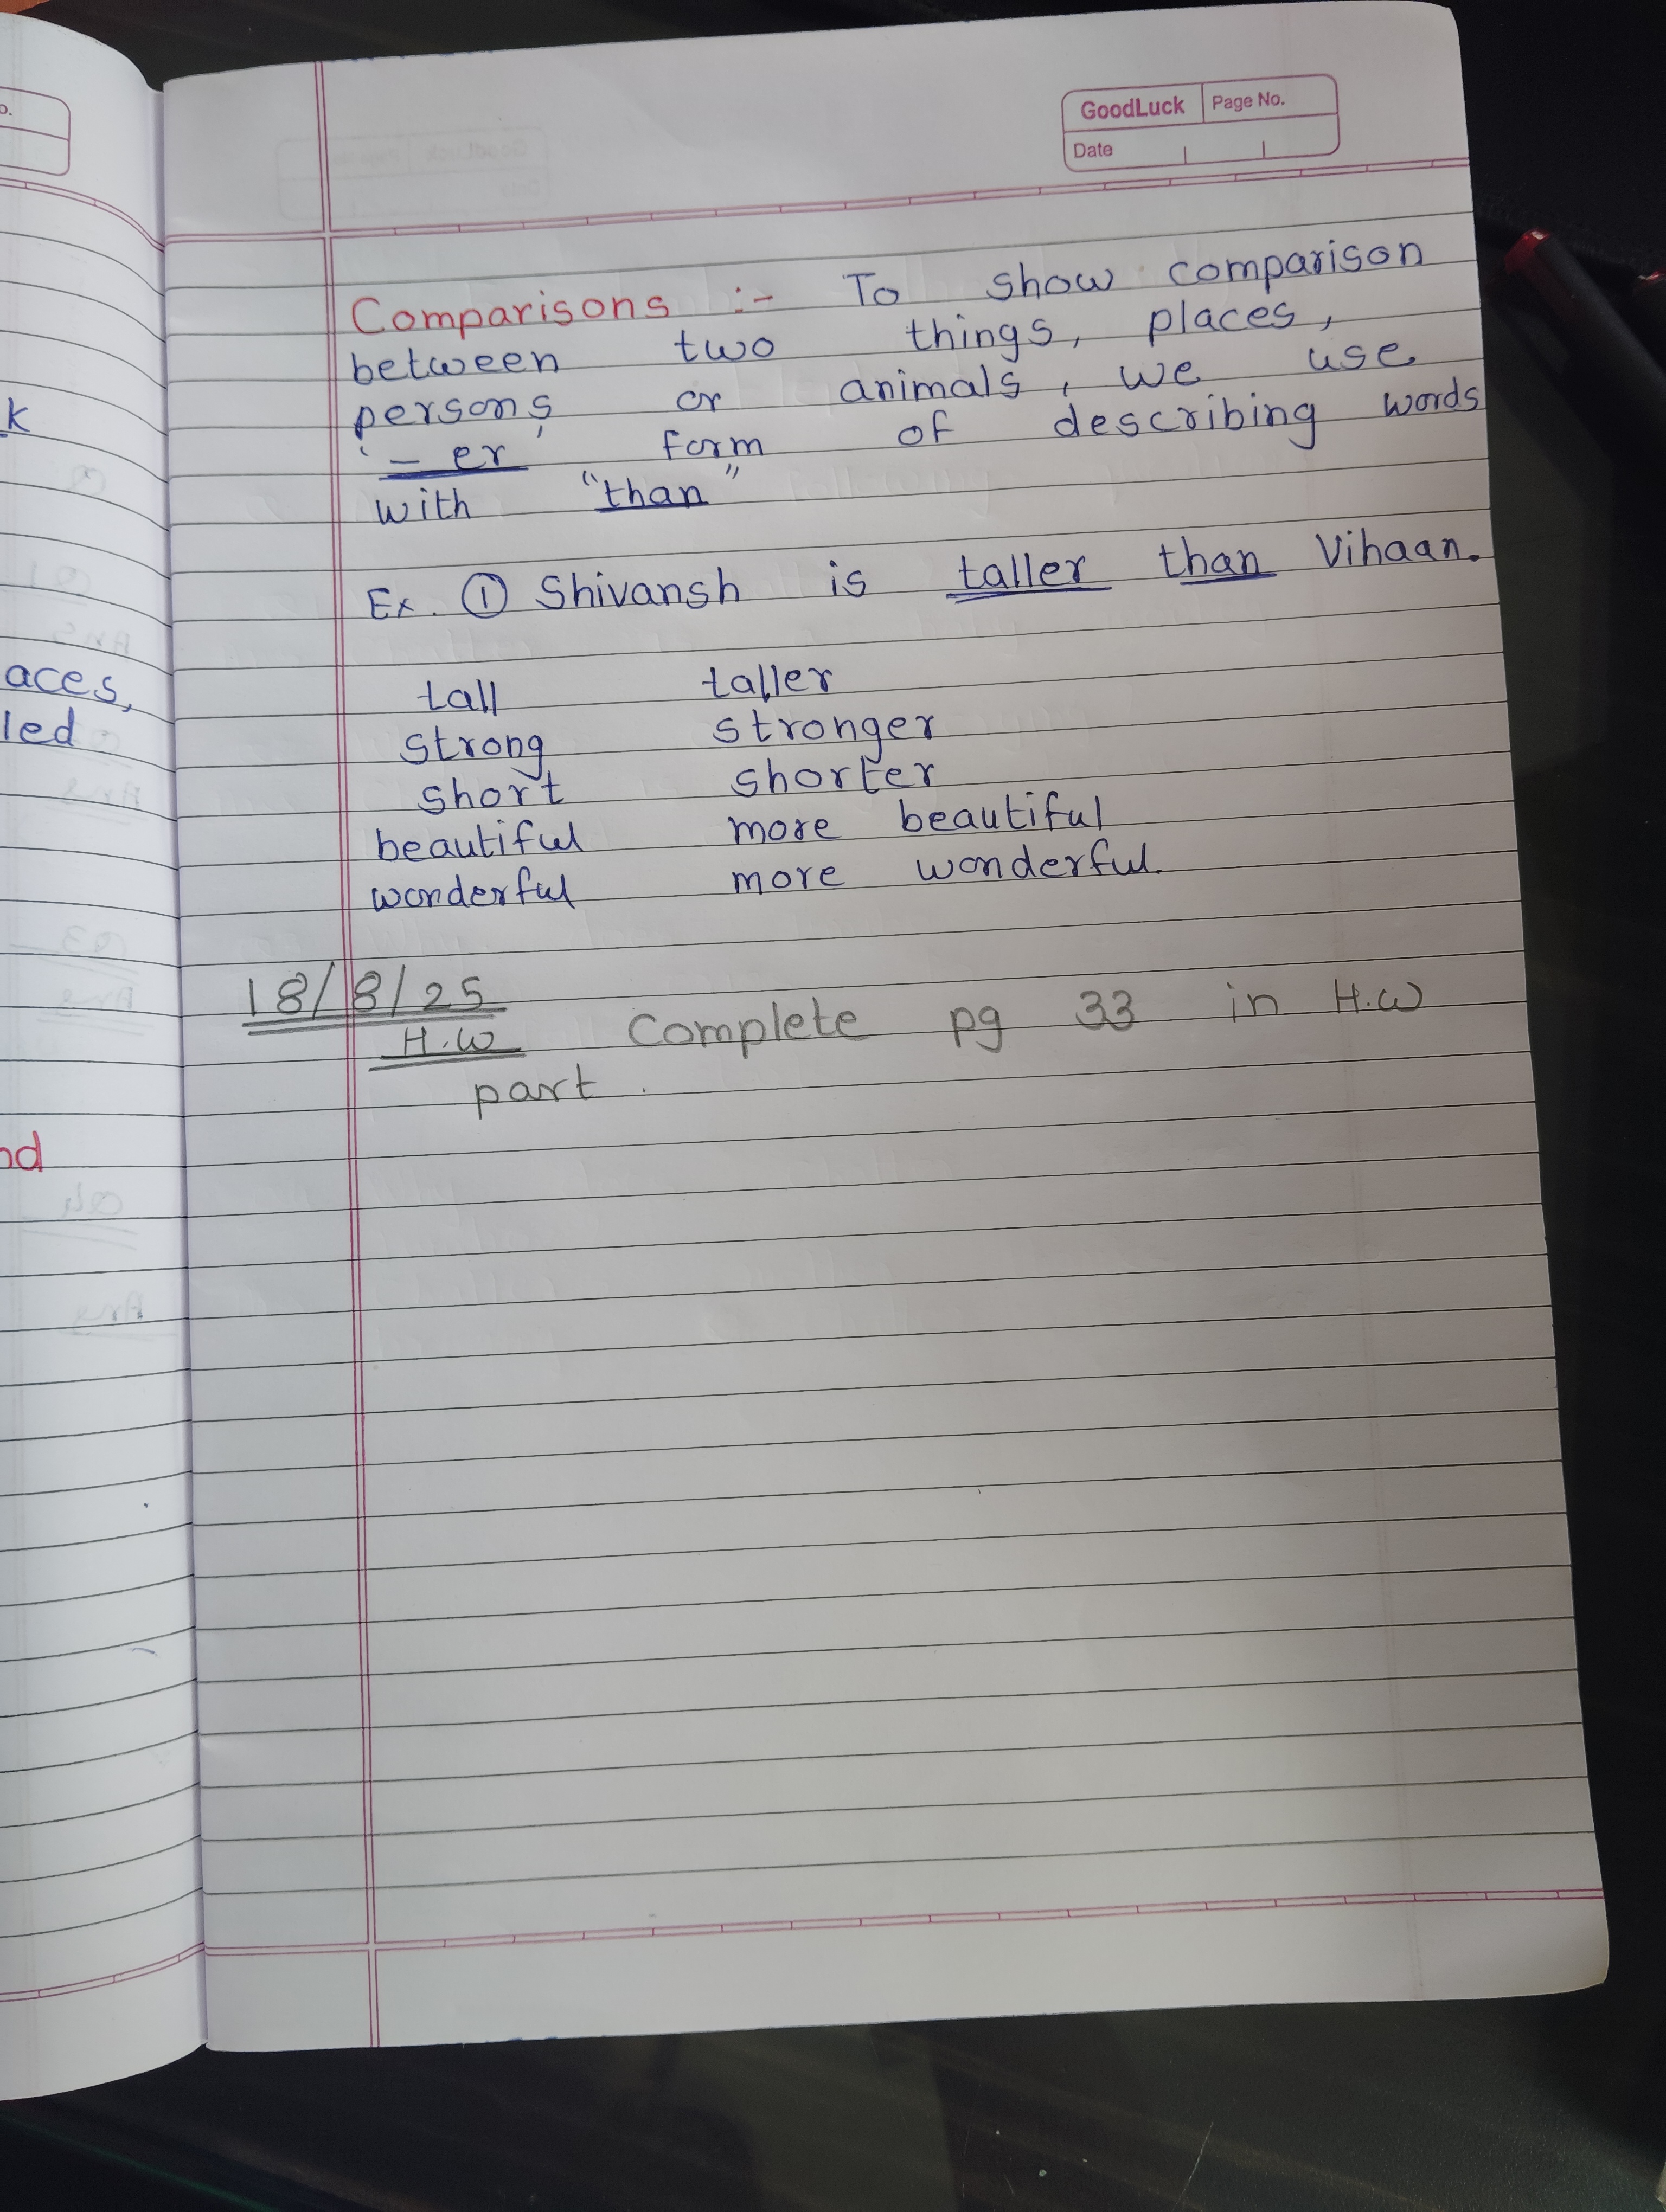 GoodLuck Page No.
Date
Comparisons :- To show comparison
between two things, places,
persons or animals, we use
'- er' form of describing words
with "than"
Ex. ① Shivansh is taller than Vihaan.
tall taller
strong stronger
short shorter
beautiful more beautiful
wonderful more wonderful.
18/8/25
H.W Complete pg 33 in H.W
part.
k
aces,
led